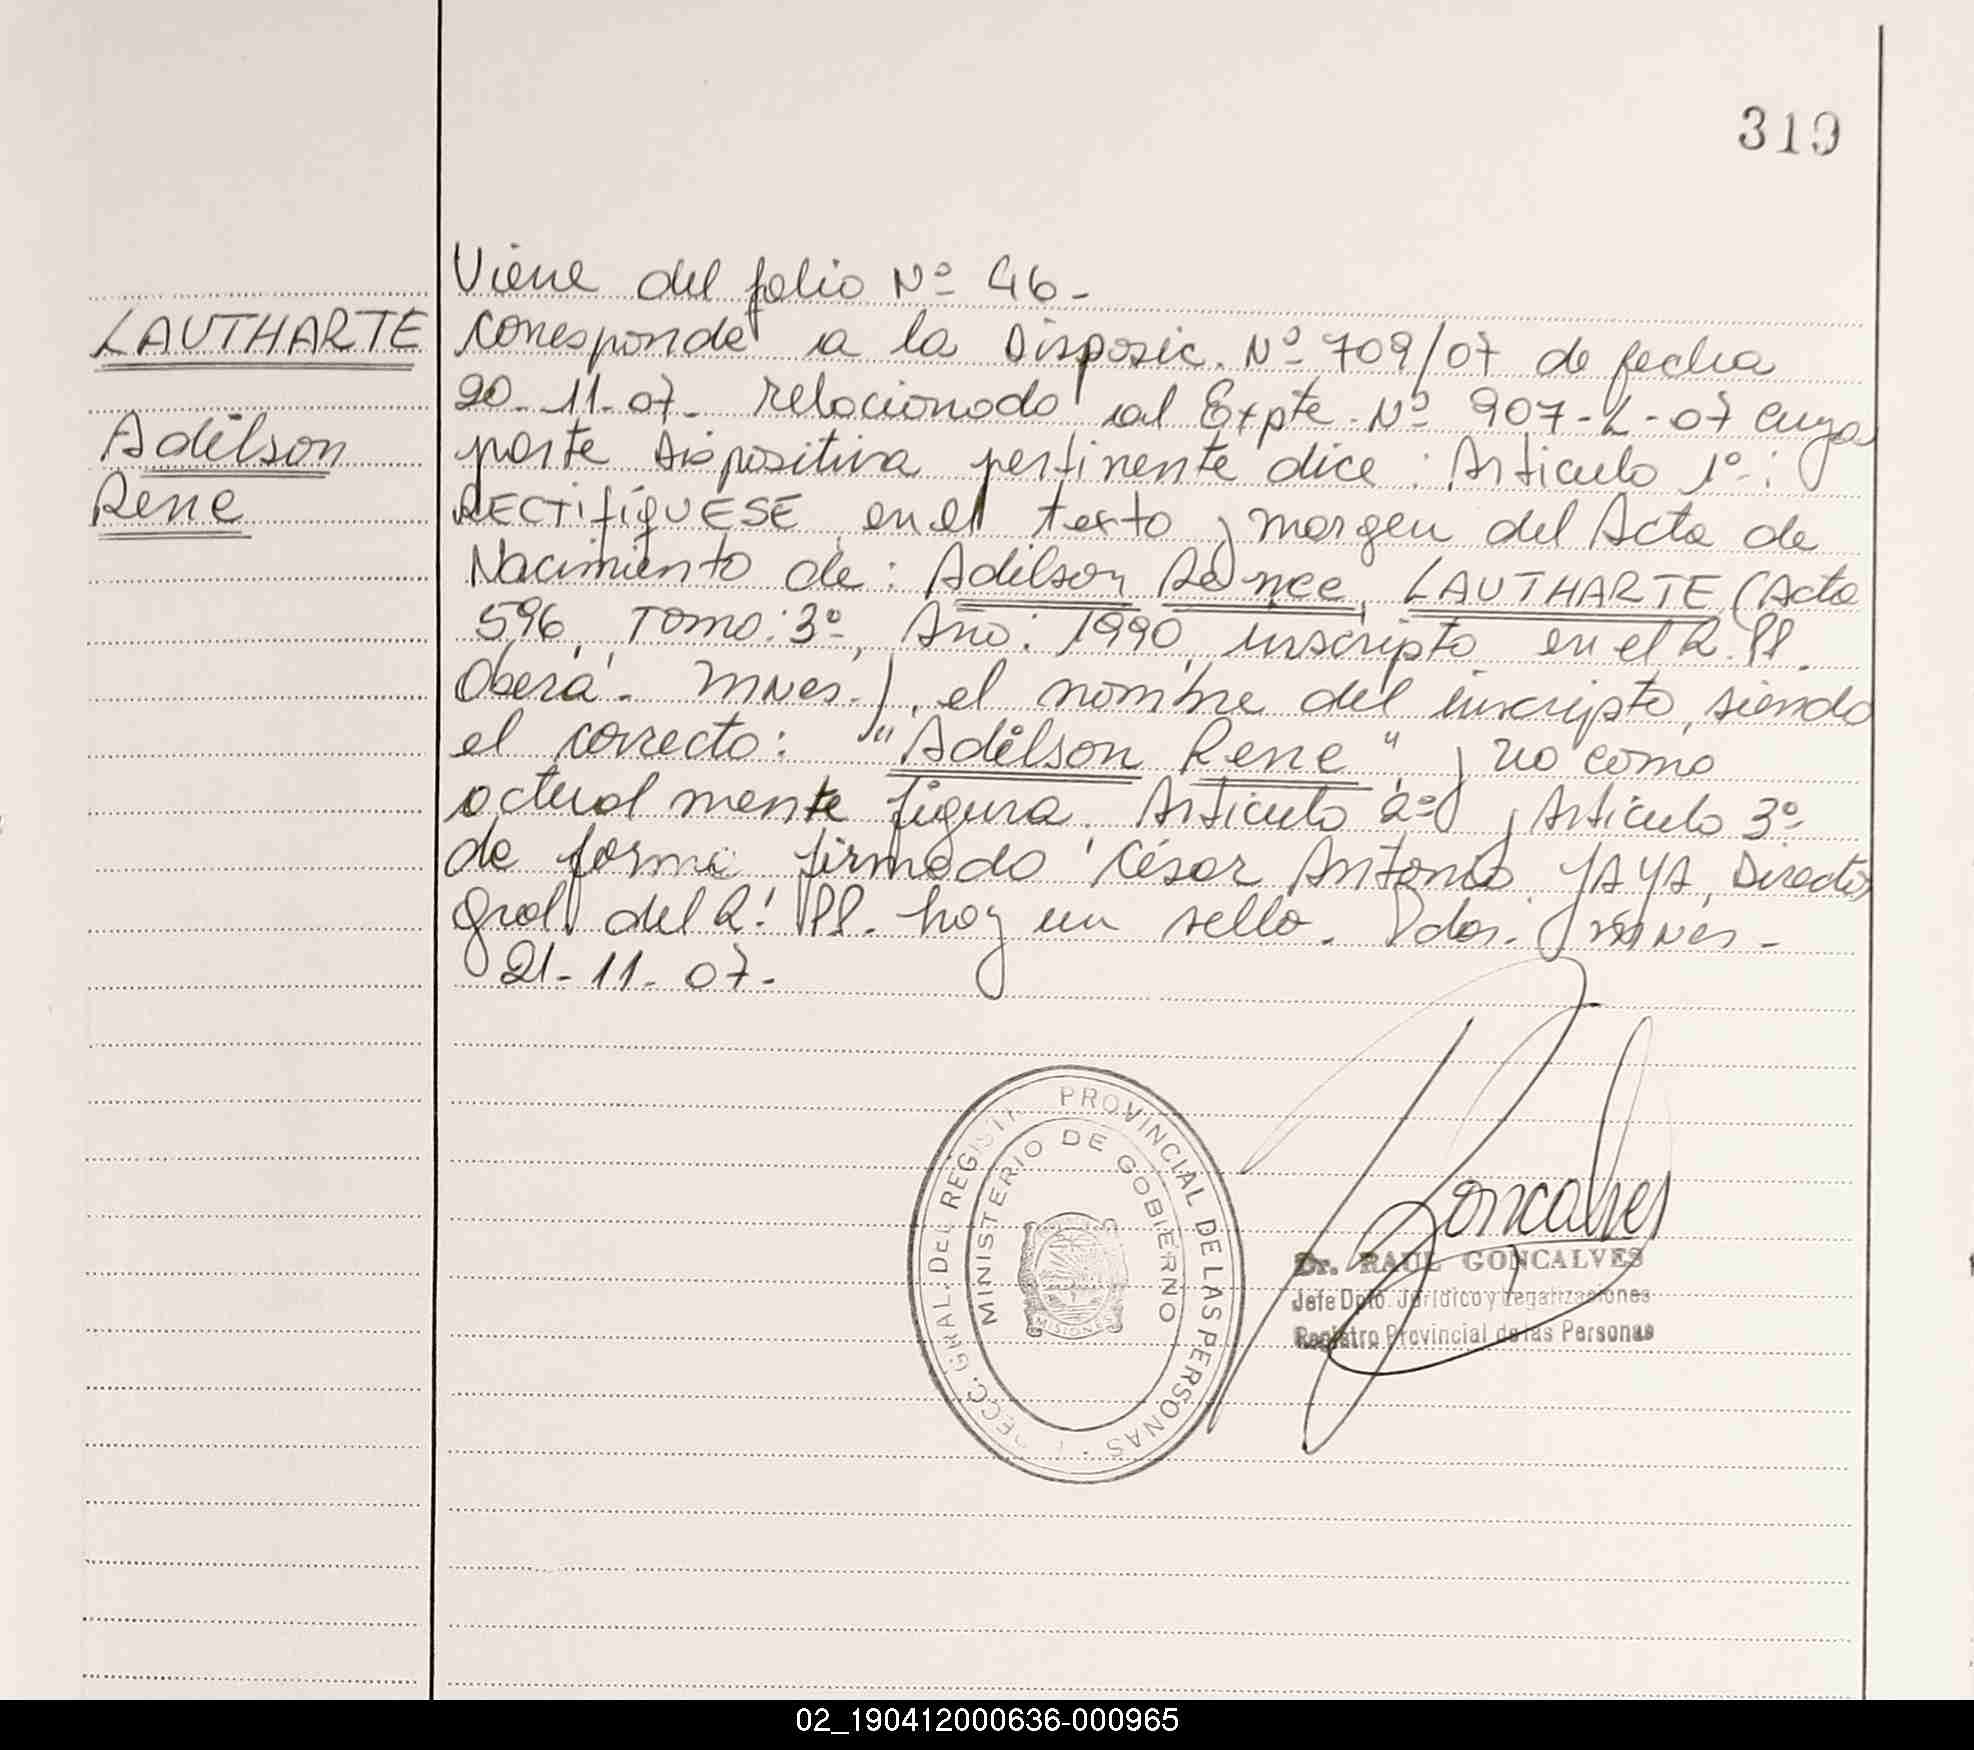 319
Viene del folio Nº 46-
LAUTHARTE
Corresponde a la Disposic. Nº 709/07 de fecha
20-11-07- relacionado al Expte. Nº 907-L-07 cuya
Adilson
parte dispositiva pertinente dice: Articulo 1º-:
Rene
RECTIFIQUESE en el texto y margen del Acta de
Nacimiento de: Adilson LAUTHARTE (Acta
596, Tomo: 3º-, Año: 1990, inscripto en el R.PP.
Oberá - Mnes.), el nombre del inscripto, siendo
el correcto: "Adilson Rene", y no como
actualmente figura. Articulo 2º y Articulo 3º-
de forma firmado César Antonio YAYA, Director
Gral del R. PP. hay un sello. Pdas. Mnes-
21-11-07-
DIRECC. GRAL. DEL REGISTRO PROVINCIAL DE LAS PERSONAS
MINISTERIO DE GOBIERNO
MISIONES
Goncalves
Dr. RAUL GONCALVES
Jefe Dpto. Jurídico y Legalizaciones
Registro Provincial de las Personas
02_190412000636-000965